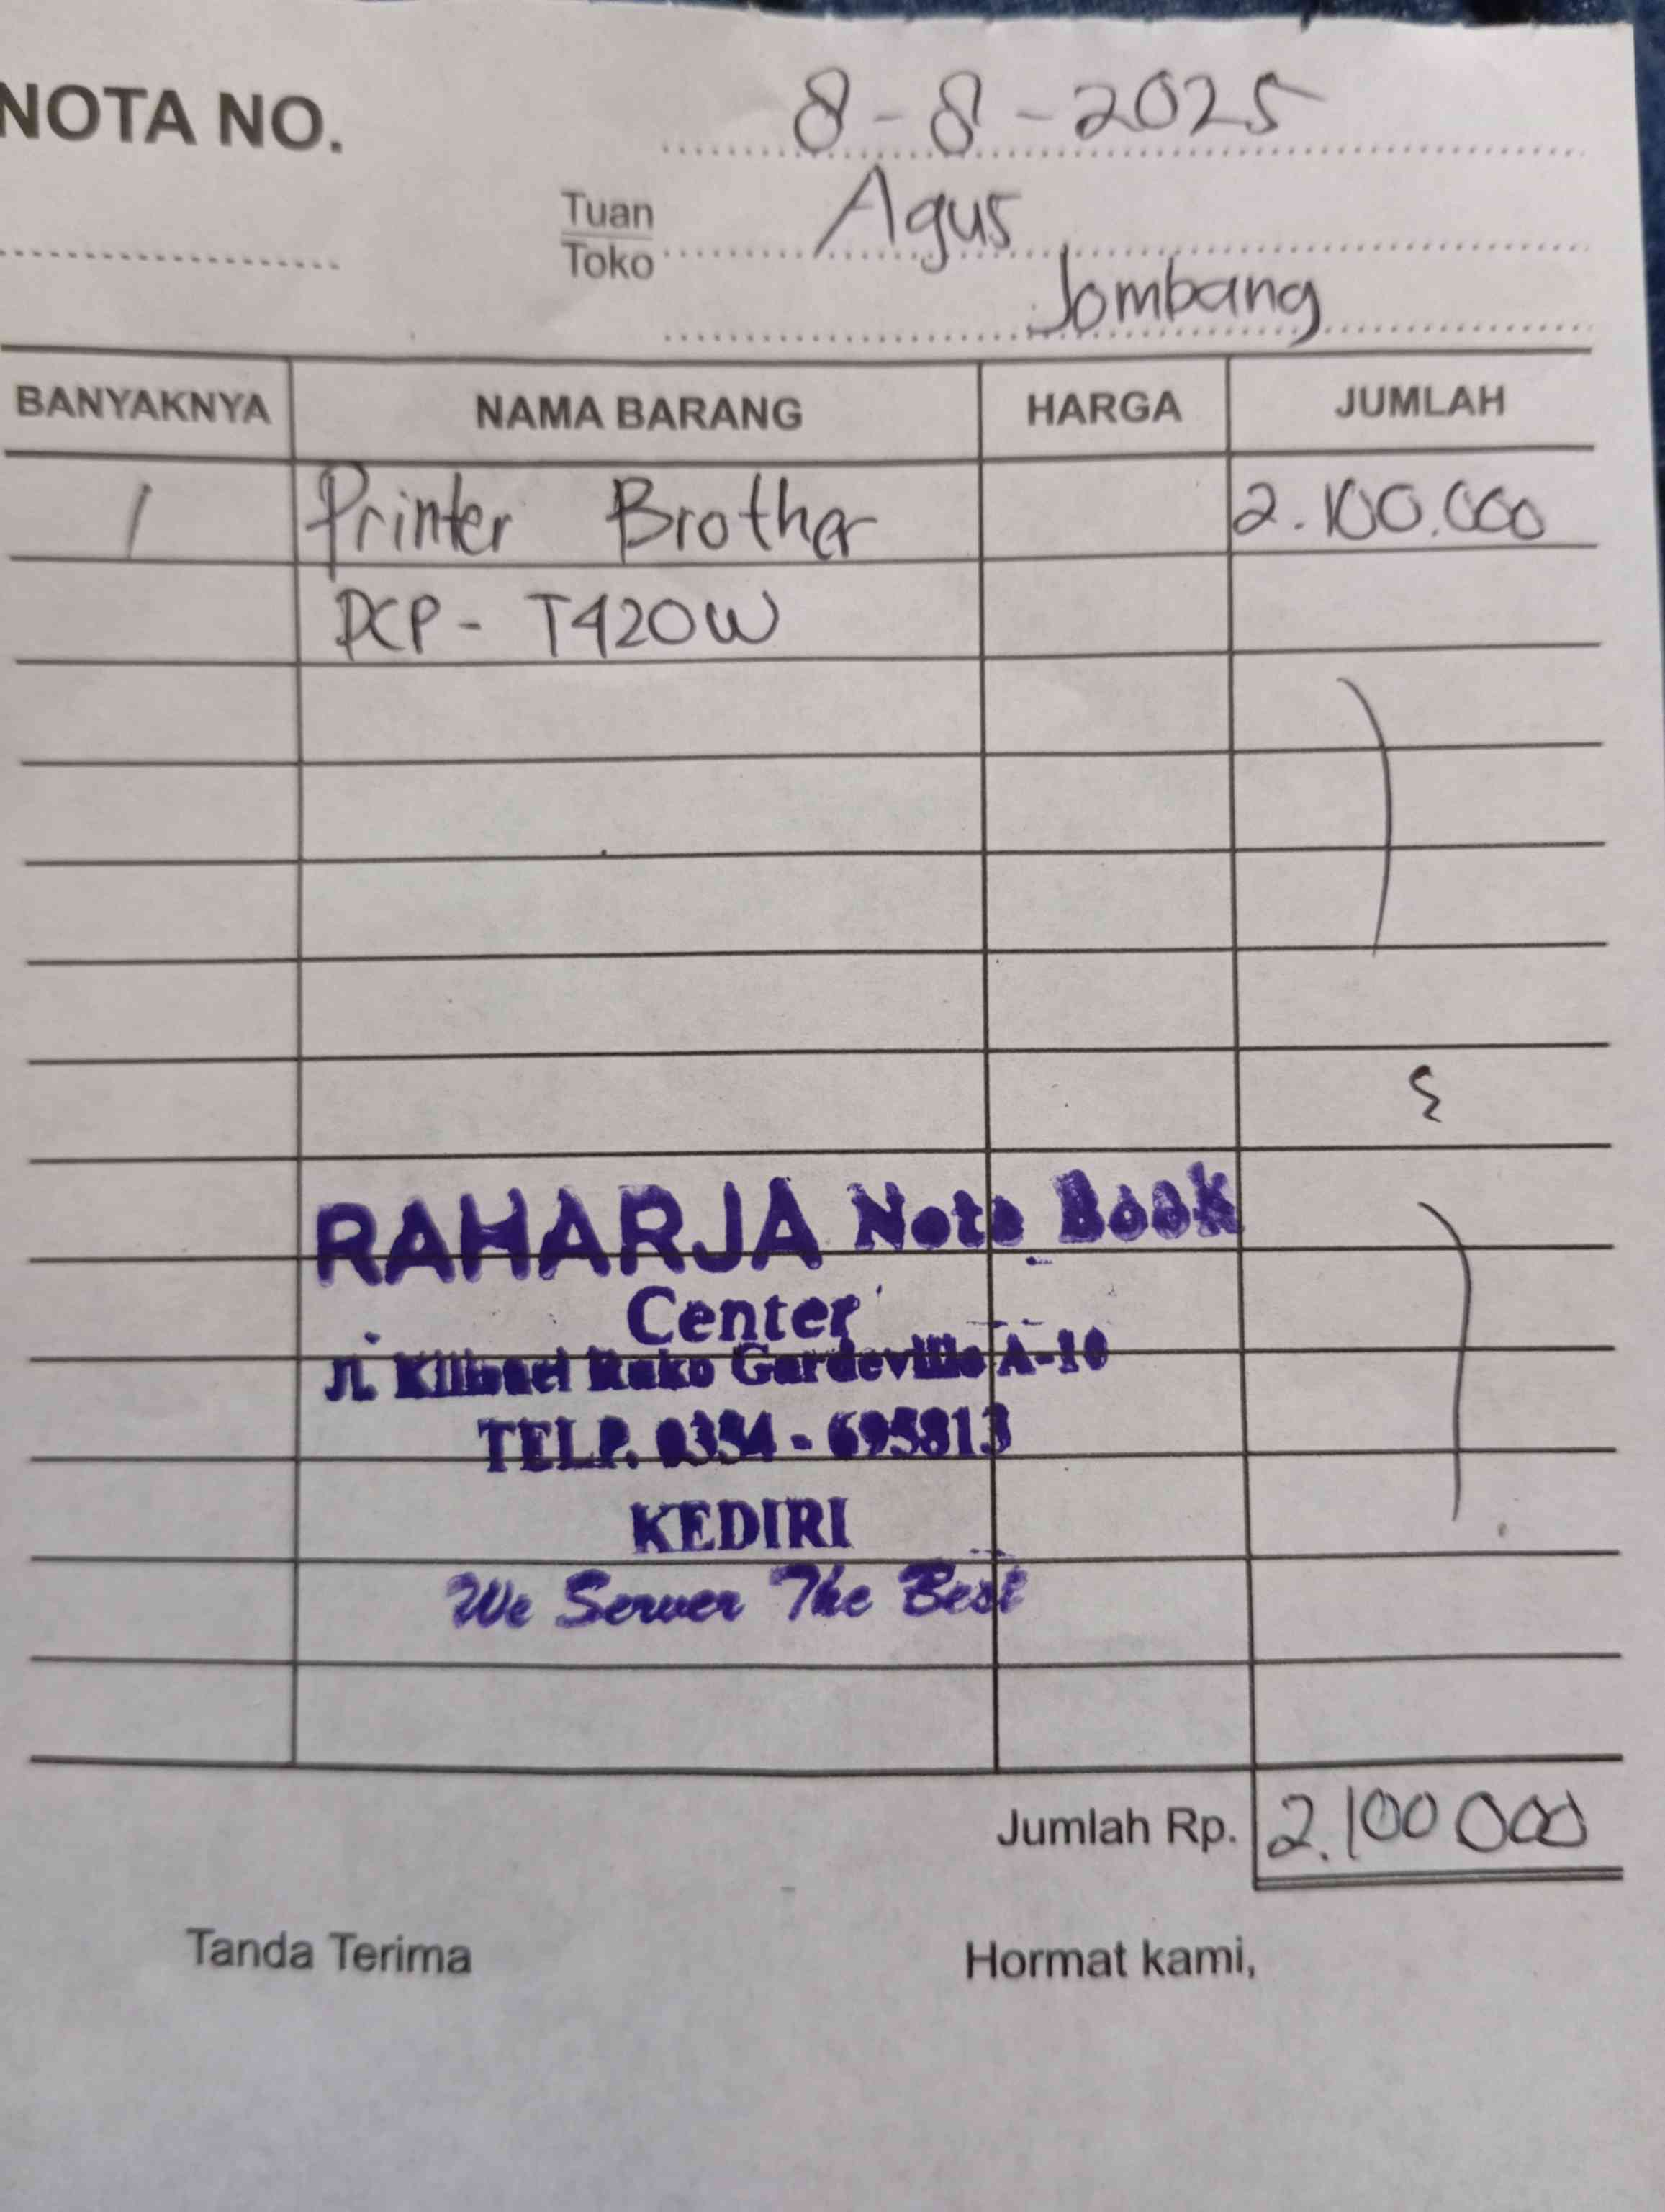 NOTA NO.
8-8-2025
Tuan
Toko
Agus
Jombang
BANYAKNYA NAMA BARANG HARGA JUMLAH
1 Printer Brother 2.100.000
DCP- T420W
RAHARJA Note Book
Center
Jl. Ruko Gardeville A-10
TELP. 0354 - 695813
KEDIRI
We Server The Best
Jumlah Rp. 2.100 000
Tanda Terima Hormat kami,